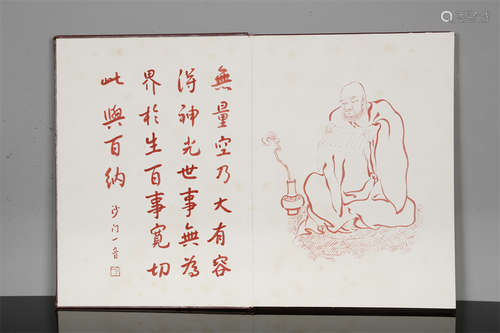 無量空乃大有容
淂神光世事無為
界於生百事寬切
此與百納
沙门一音